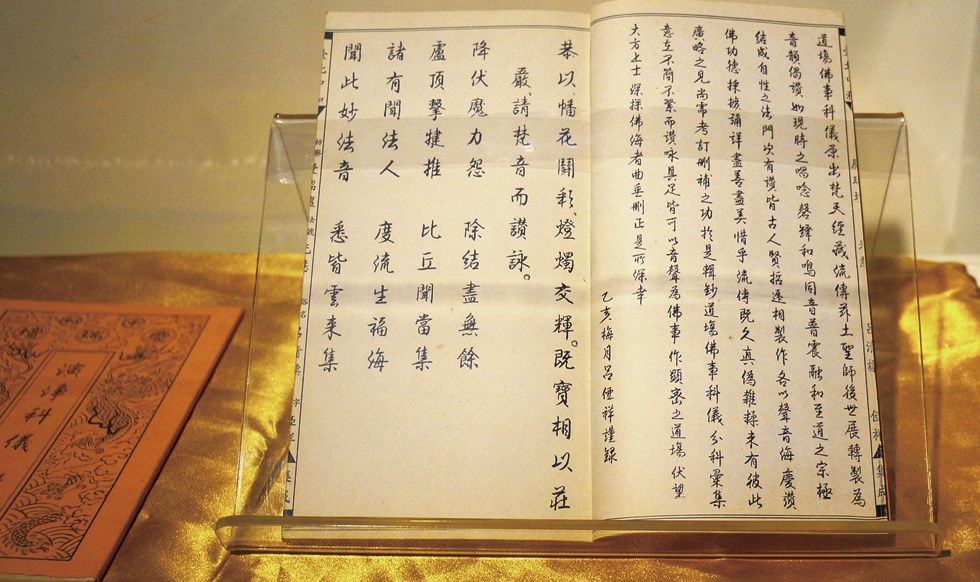 道場佛事科儀原出梵天經藏流傳茲土聖師後世展轉製為
音韻偈讚如現時之唱唸磬鐸和鳴同音普震融和至道之宗極
結成自性之法門次有讚皆古人賢哲遞相製作各以聲音海慶讚
佛功德採摭誦詳盡善盡美惜乎流傳既久真偽雜糅未有彼此
廣略之見尚需考訂刪補之功於是輯鈔道場佛事科儀分科彙集
意在不簡不繁而讚咏具足皆可以音聲為佛事作顯密之道場伏望
大方上士深探佛海者曲垂刪正是所深幸
乙亥梅月呂祥謹錄
恭以、幡花鬪彩、燈燭交輝。既寶相以莊
嚴、請梵音而讚詠。
降伏魔力怨 除結盡無餘
盧頂擊犍推 比丘聞當集
諸有聞法人 度流生福海
聞此妙法音 悉皆雲來集
演淨科儀